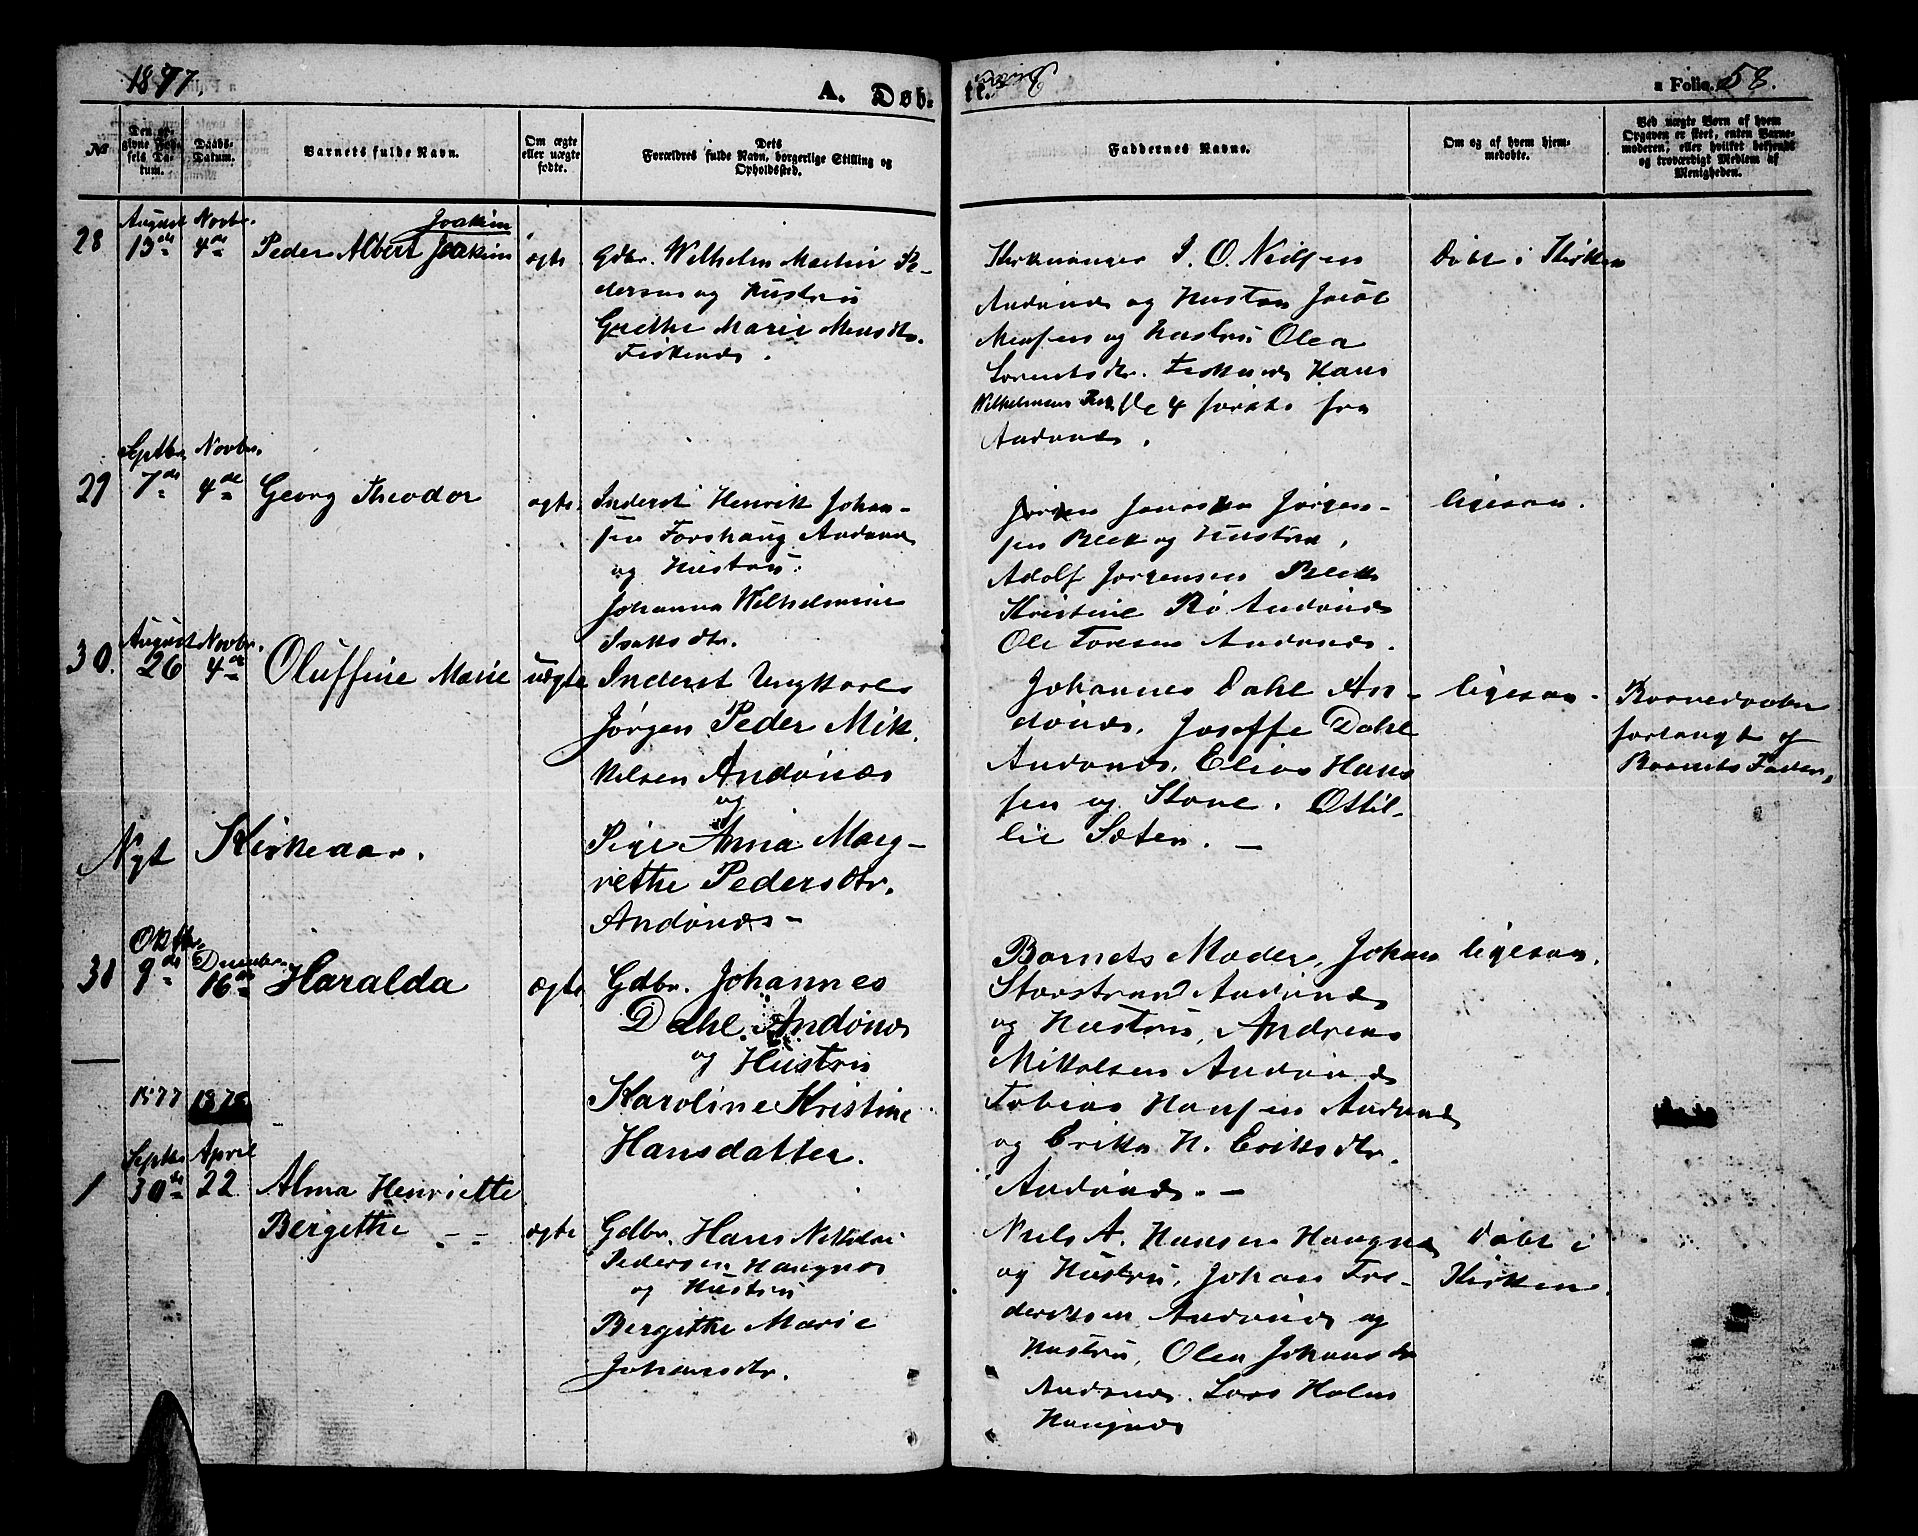 1877.
A. Døb-
te.
a Folio. 58.
№
Den opgivne Fødsels Datum.
Daabs-Datum.
Barnets fulde Navn.
Om ægte eller uægte fødte.
Dets Forældres fulde Navn, borgerlige Stilling og Opholdssted.
Faddernes Navne.
Om og af hvem hjemmedøbte.
Ved uægte Børn af hvem Opgaven er skeet, enten Barnemoderen, eller hvilket bekjendt og troværdigt Medlem af Menigheden.
28
August 13de
Novbr. 4de
Joakim
Peder Albert Joakim
ægte
Gdbr. Wilhelm Martin Pe-
dersen og Hustru
Grethe Marie Monsdtr.
Kirkesanger J. O. Nilsen
Andønæs og Hustru Jacob
Monsen og Hustru Olea
Lorentsdtr. Hans
4 første fra
Andønæs.
Døbt i Kirken
29
Septbr. 7de
Novbr. 4de
Georg Theodor
ægte.
Inderst Henrik Johan-
sen Forshaug Andønæs
og Hustru:
Johanna Wilhelmine
Isaksdtr.
Jørgen-
sen Bleik og Hustru,
Adolf Jørgensen Bleik
Kristine Rø Andønæs
Ole Toresen Andønæs.
ligesaa.
30.
August 26
Novbr. 4de
Oluffine Marie
uægte
Inderst Ungkarl
Jørgen Peder Mik-
kelsen Andønæs
og
Pige Anna Marg-
rethe Pedersdtr.
Andønæs -
Johannes Dahl An-
dønæs, Joseffe Dahl
Andønæs, Elias Han-
sen og Kone. Ottil-
lie Sæter. -
ligesaa -
Barnedaaben
forlangt af
Barnets Fader.
Nyt Kirkeaar.
31
Oktbr. 9de
December 16de
Haralda
ægte
Gdbr. Johannes
Dahl, Andønæs
og Hustru
Karoline Kristine
Hansdatter.
Barnets Moder, Johan
Storstrand Andønæs
og Hustru, Andreas
Mikalsen Andønæs
Tobias Hansen Andønæs
og Erika H. Eriksdtr.
Andønæs. -
ligesaa.
1877
1878
1
Septbr. 30de
April 22
Alma Henriette
Bergithe - -
ægte
Gdbr. Hans Nikolai
Pedersen Haugnæs
og Hustru
Bergithe Marie
Johansdtr.
Niels A. Hansen Haugnæs
og Hustru, Johan Fre-
deriksen Andønæs og
Hustru, Olea Johansdtr
Andønæs. Lars Holm
Haugnæs
Døbt i
Kirken.